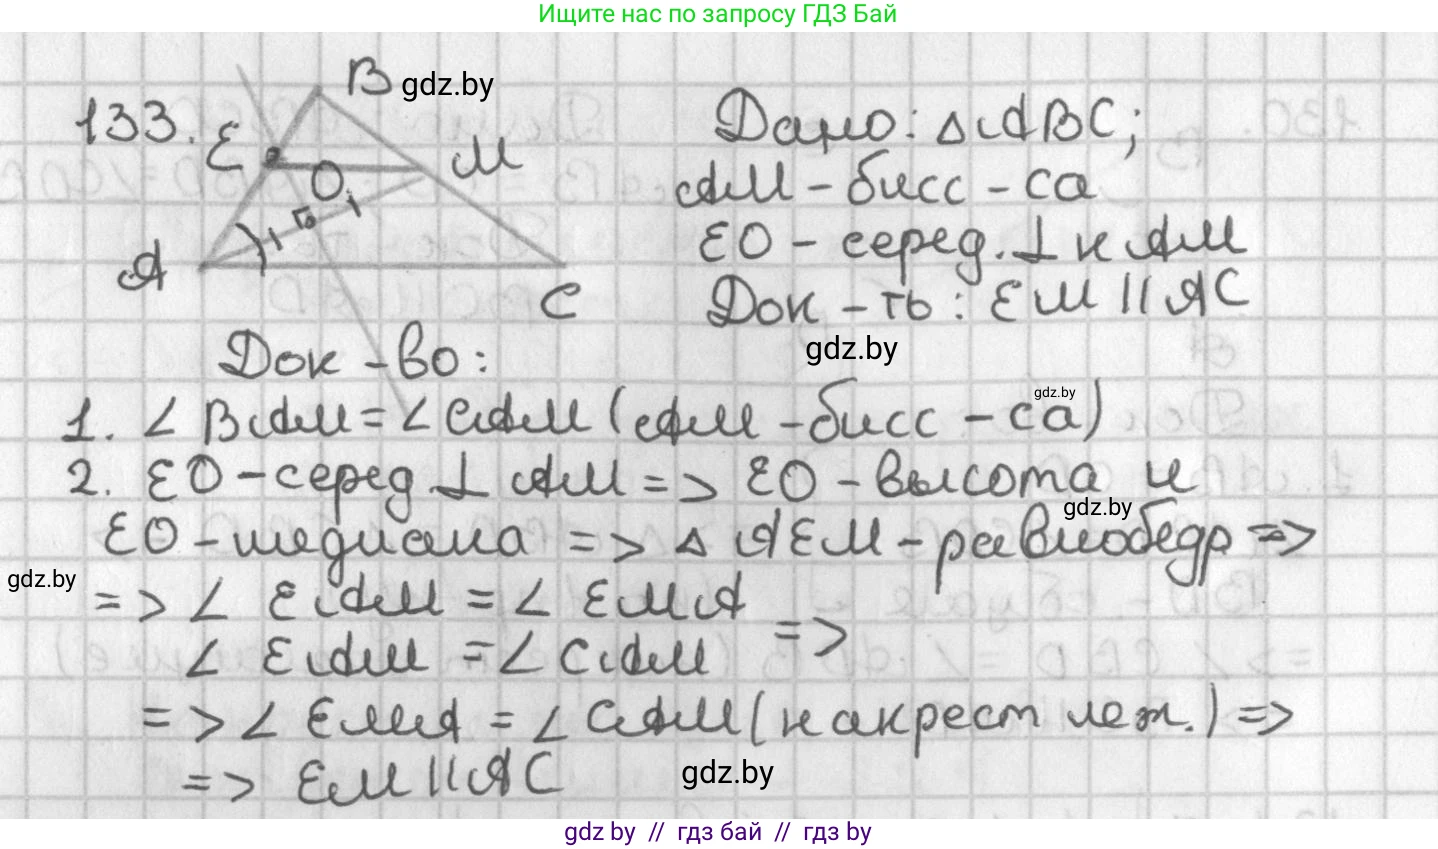 Ищите нас по запросу ГДЗ Бай
133.
B
gdz.by
E
M
O
A
C
Дано: △ABC;
AM - бисс-са
EO - серед. ⊥ к AM
Док-ть: EM || AC
gdz.by
Док-во:
gdz.by
1. ∠ BAM = ∠ CAM (AM - бисс-са)
2. EO - серед ⊥ AM => EO - высота и
gdz.by
EO - медиана => △ AEM - равнобедр =>
gdz.by
=> ∠ EAM = ∠ EMA
∠ EAM = ∠ CAM =>
=> ∠ EMA = ∠ CAM (накрест леж.) =>
=> EM || AC
gdz.by
gdz by // гдз бай // гдз by